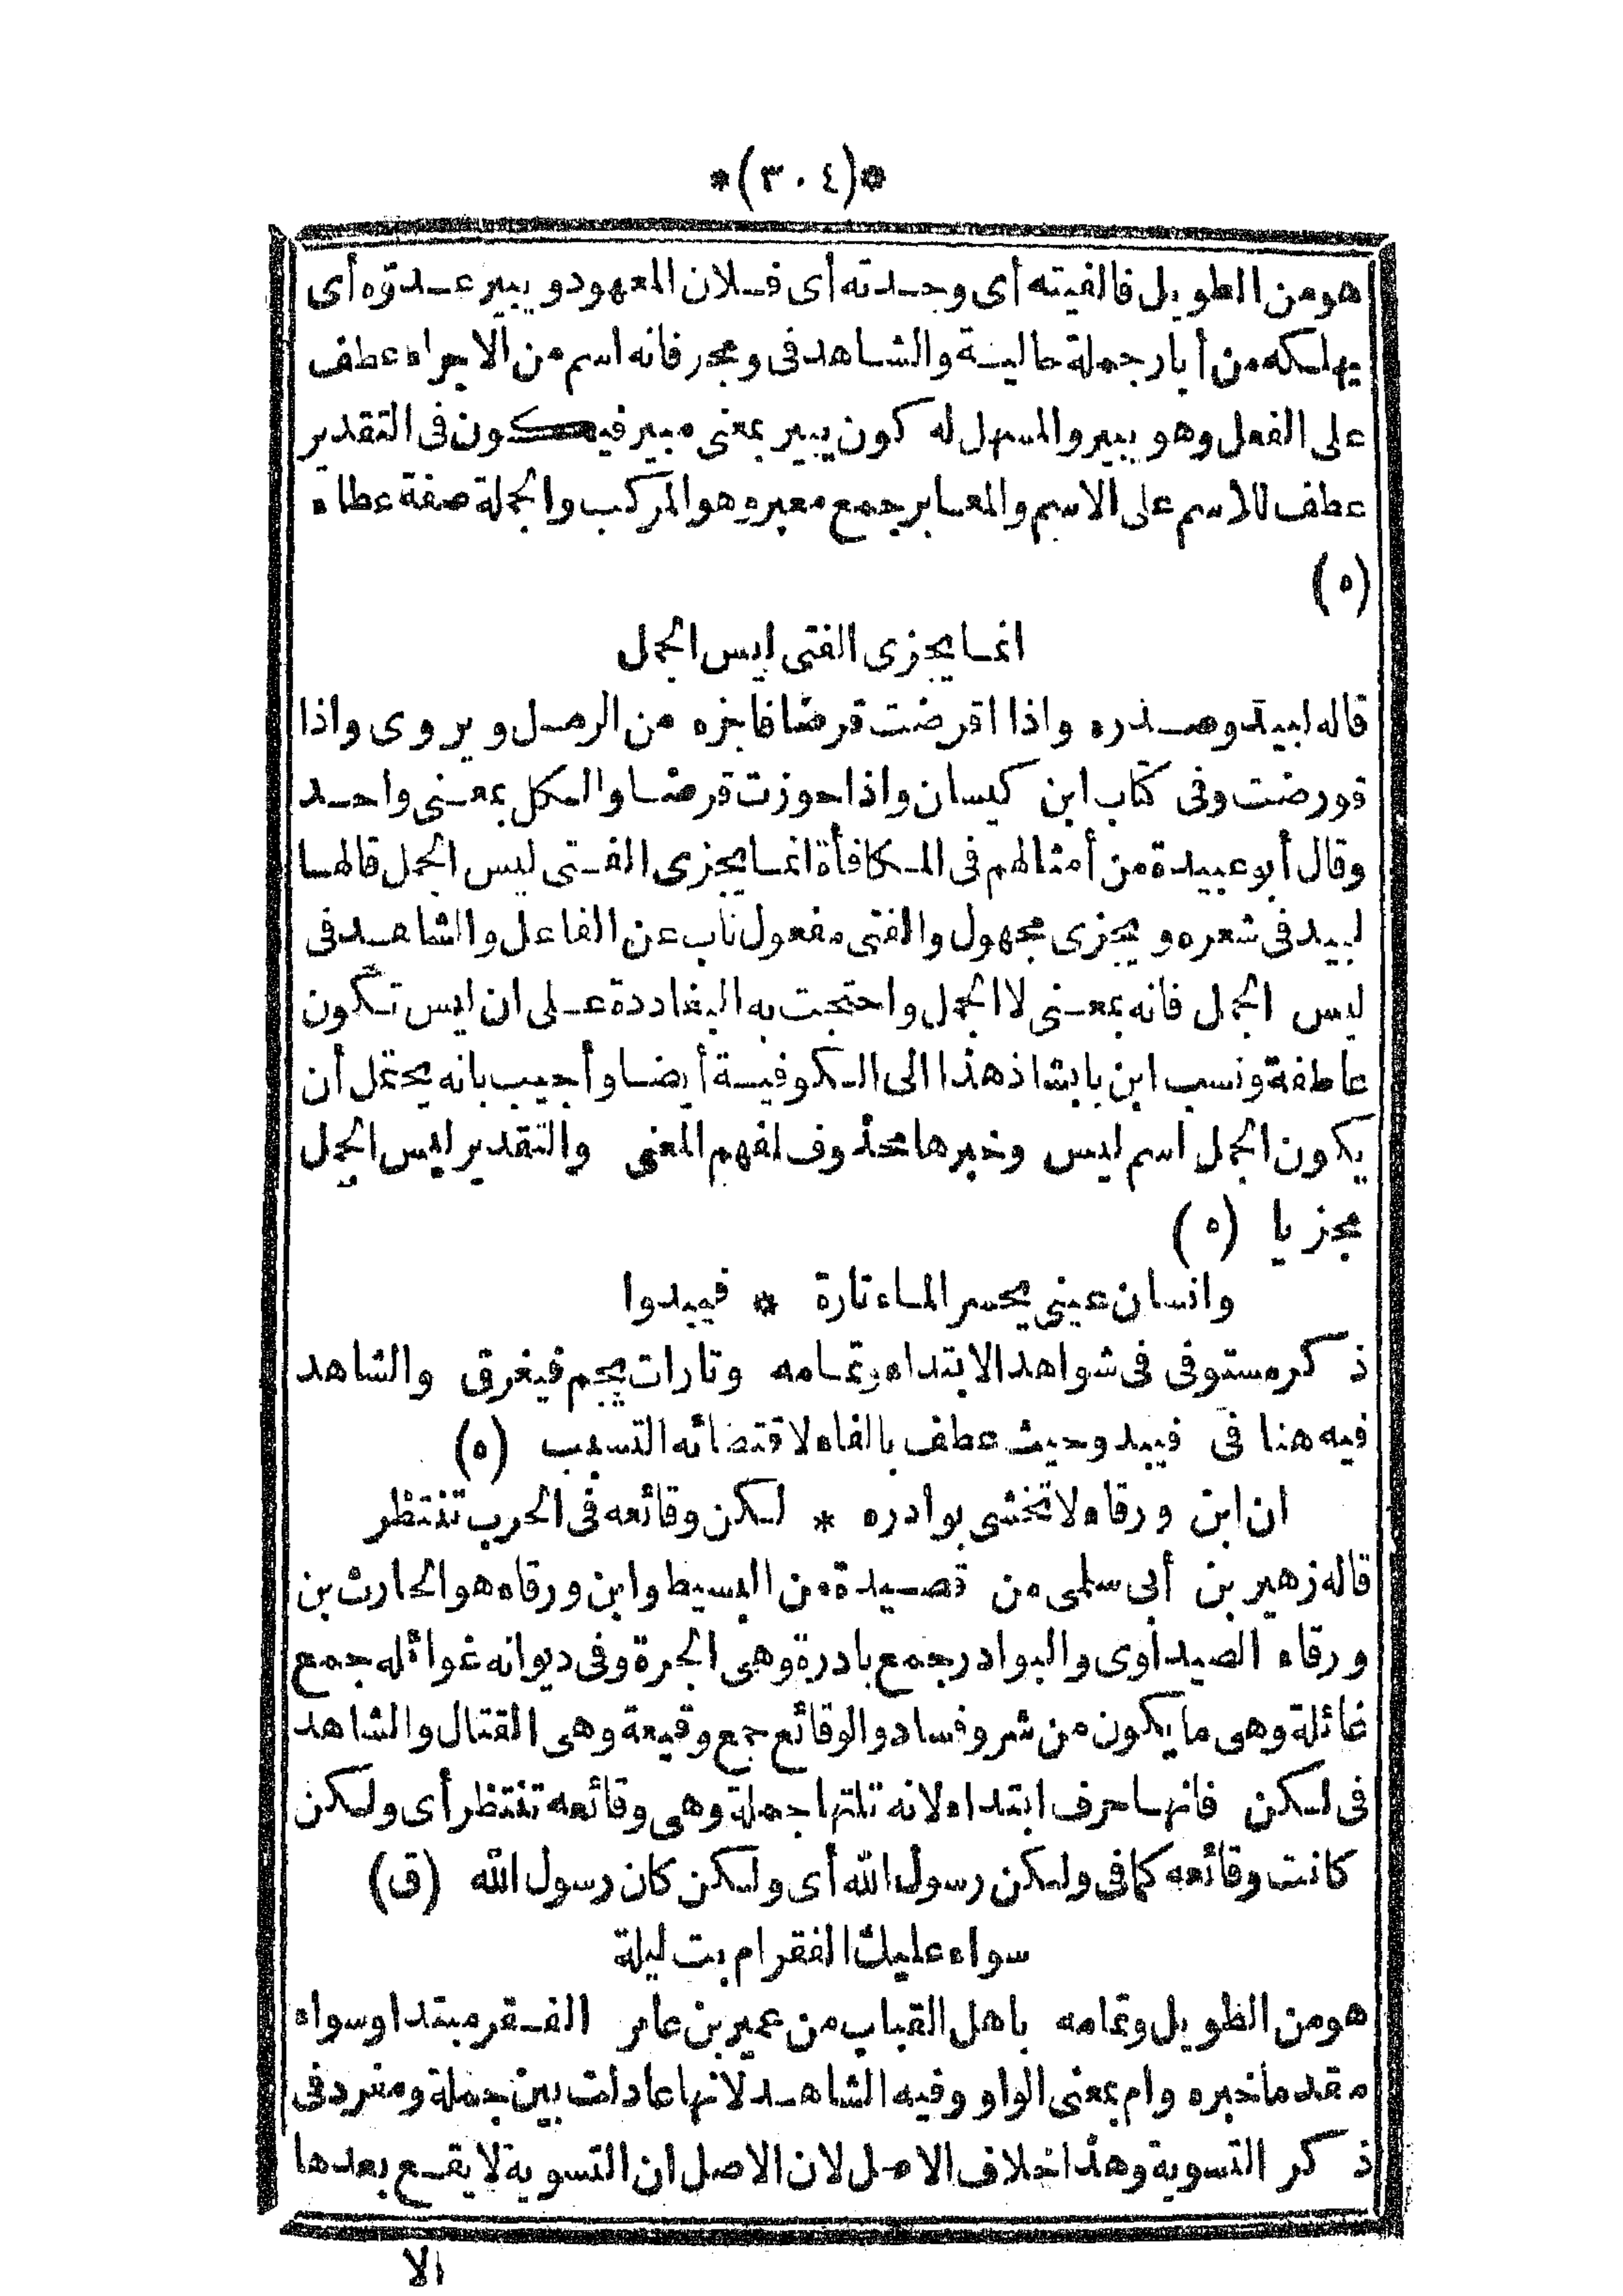 *(٣٠٤)*
هو من الطويل فالفيته أى وجدته أى فلان المعهود ويبير عدوّه أى
يهلكه من أبار جملة حالية والشاهد فى ومجر فانه اسم من الاجراء عطف
على الفعل وهو يبير والمسهل له كون يبير بمعنى مبير فيكون فى التقدير
عطف للاسم على الاسم والمعابر جمع معبر وهو المركب والجملة صفة عطاء
(ه)
انما يجزى الفتى ليس الجمل
قاله لبيد وصدره واذا اقرضت قرضا فاجزه من الرمل ويروى واذا
قورضت وفى كتاب ابن كيسان واذا جوزت قرضا والكل بمعنى واحد
وقال أبو عبيدة من أمثالهم فى المكافأة انما يجزى الفتى ليس الجمل قالها
لبيد فى شعره ويجزى مجهول والفتى مفعول ناب عن الفاعل والشاهد فى
ليس الجمل فانه بمعنى لا الجمل واحتجت به البغاددة على ان ليس تكون
عاطفة ونسب ابن بابشاذ هذا الى الكوفية أيضا وأجيب بانه يحتمل أن
يكون الجمل اسم ليس وخبرها محذوف لفهم المعنى والتقدير ليس الجمل
مجزيا (ه)
وانسان عينى يحسر الماء تارة * فيبدوا
ذكر مستوفى فى شواهد الابتداء وتمامه وتارات يجم فيغرق والشاهد
فيه هنا فى فيبدو حيث عطف بالفاء لاقتضائه التسبب (ه)
ان ابن ورقاء لا تخشى بوادره * لكن وقائعه فى الحرب تنتظر
قاله زهير بن أبى سلمى من قصيدة من البسيط وابن ورقاء هو الحارث بن
ورقاء الصيداوى والبوادر جمع بادرة وهى الحدة وفى ديوانه غوائله جمع
غائلة وهى ما يكون من شر وفساد والوقائع جمع وقيعة وهى القتال والشاهد
فى لكن فانها حرف ابتداء لانه تلتها جملة وهى وقائعه تنتظر أى ولكن
كانت وقائعه كما فى ولكن رسول الله أى ولكن كان رسول الله (ق)
سواء عليك الفقر ام بت ليلة
هو من الطويل وتمامه باهل القباب من عمير بن عامر الفقر مبتدا وسواء
مقدما خبره وام بمعنى الواو وفيه الشاهد لانها عادلت بين جملة ومفرد فى
ذكر التسوية وهذا خلاف الاصل لان الاصل ان التسوية لا يقع بعدها
الا